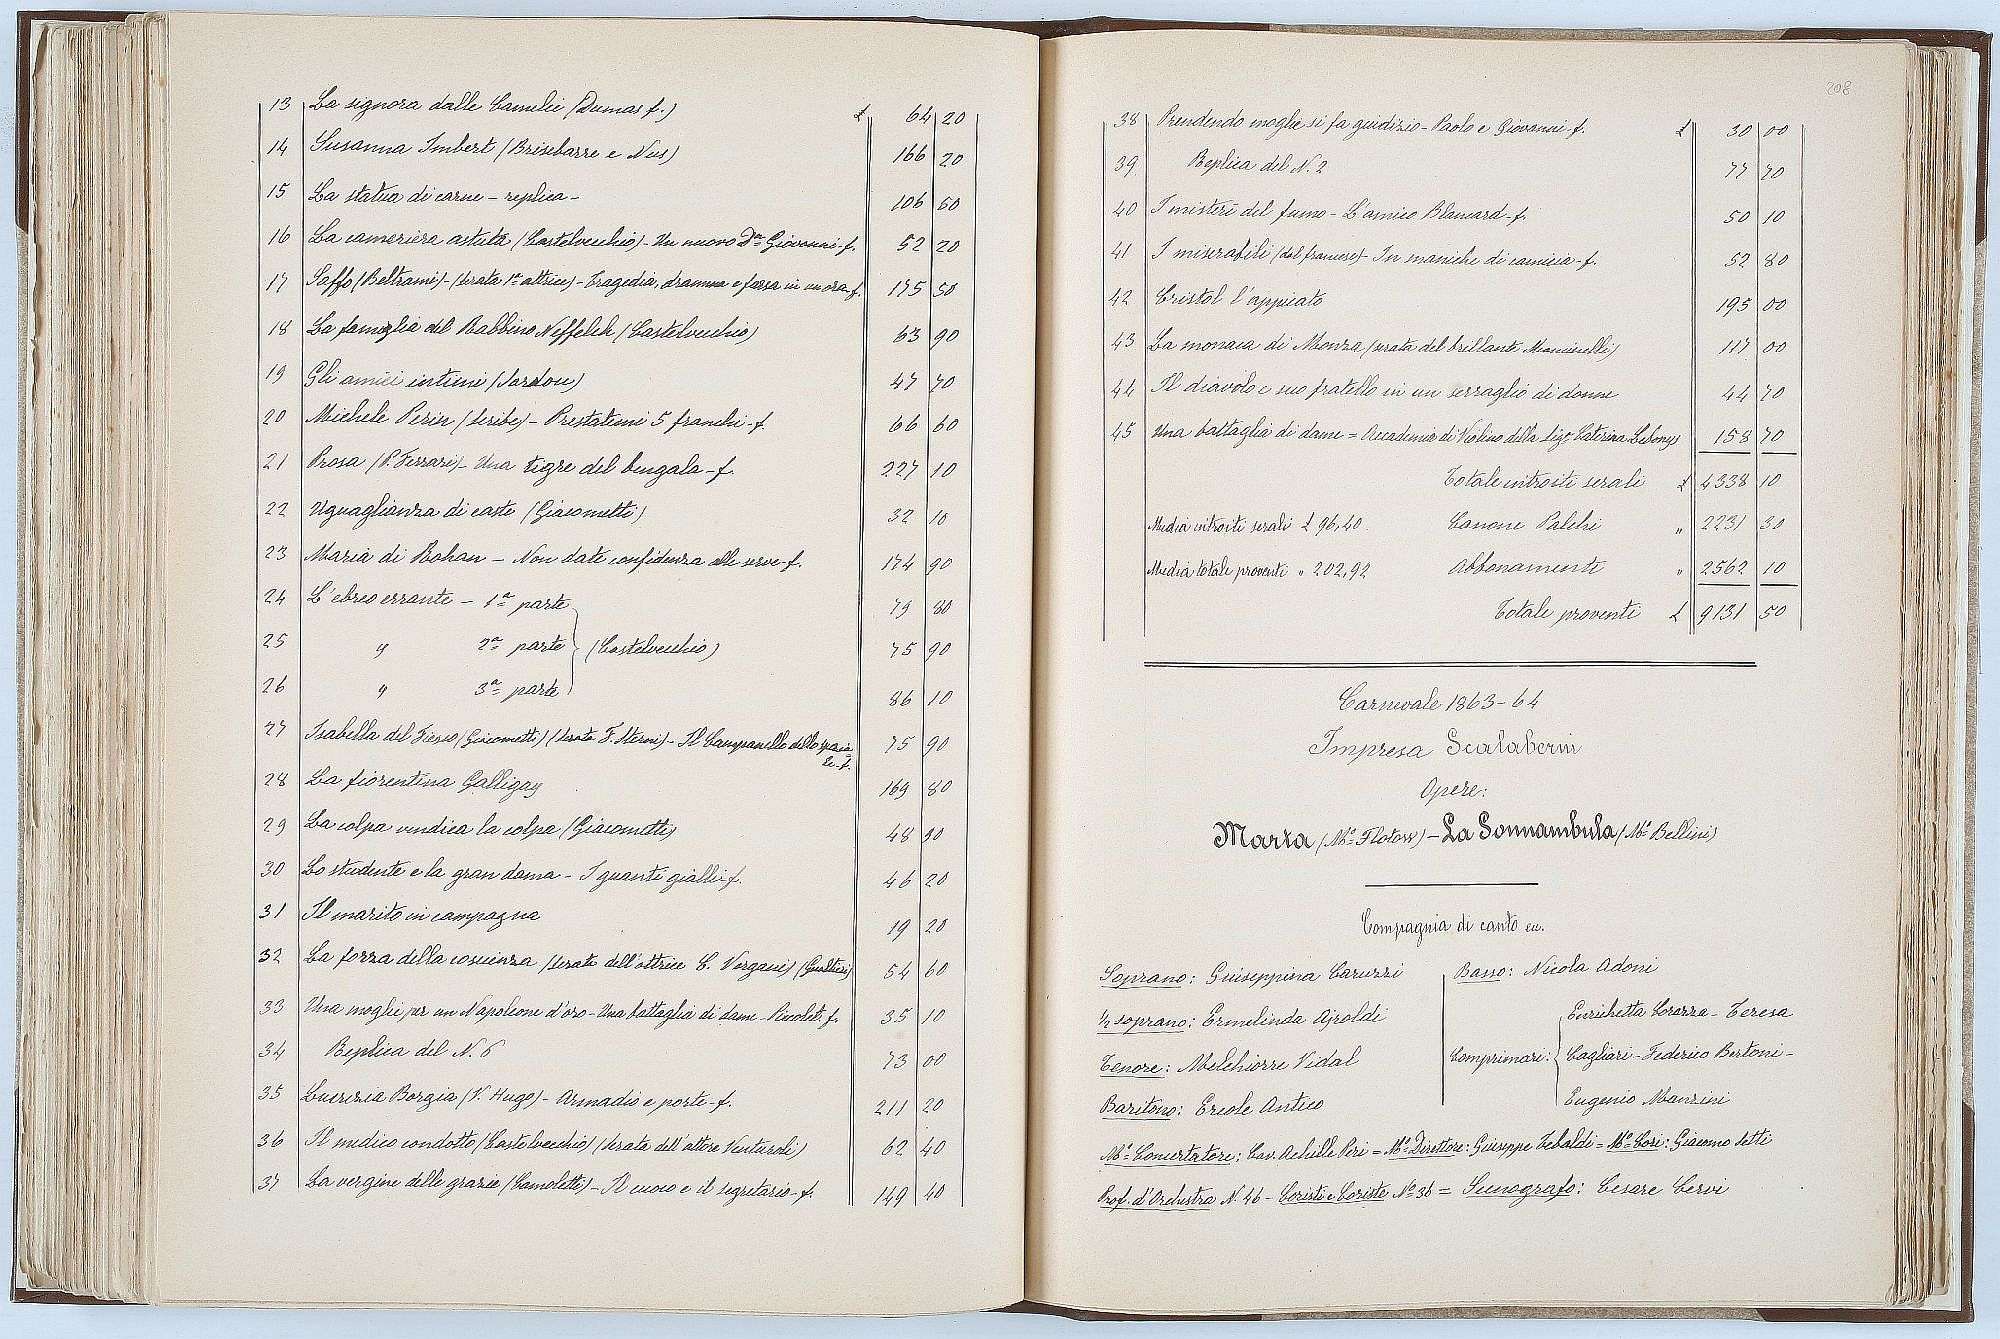 13 La signora dalle Camelie (Dumas f.) £ 64 20
14 Susanna Imbert (Brisebarre e Nus) 166 20
15 La statua di carne - replica - 106 60
16 La cameriera astuta (Castelvecchio) - Un nuovo Dn Giovanni - f. 52 20
17 Saffo (Beltrami) - (serata 1a attrice) - Tragedia, dramma e farsa in un'ora - f. 175 50
18 La famiglia del Rabbino Neffelek (Castelvecchio) 63 90
19 Gli amici intimi (Sardou) 47 70
20 Michele Perin (Scribe) - Prestatemi 5 franchi - f. 66 60
21 Prosa (P. Ferrari) - Una tigre del bengala - f. 227 10
22 Uguaglianza di caste (Giacometti) 32 10
23 Maria di Rohan - Non date confidenza alle serve - f. 174 90
24 L'ebreo errante - 1a parte 79 80
25 " 2a parte (Castelvecchio) 75 90
26 " 3a parte 86 10
27 Isabella del Fiesco (Giacometti) (serata F. Sterni) - Il Campanello dello spezia-
le - f. 75 90
28 La fiorentina Galligay 169 80
29 La colpa vendica la colpa (Giacometti) 48 90
30 Lo studente e la gran dama - I guanti gialli - f. 46 20
31 Il marito in campagna 19 20
32 La forza della coscienza (serata dell'attrice C. Vergani) (Gualtieri) 54 60
33 Una moglie per un Napoleone d'oro - Una battaglia di dame - f. 35 10
34 Replica del N. 6 73 00
35 Lucrezia Borgia (V. Hugo) - Armadio e porte - f. 211 20
36 Il medico condotto (Castelvecchio) (serata dell'attore Venturoli) 62 40
37 La vergine delle grazie (Camoletti) - Il cuoco e il segretario - f. 149 40
208
38 Prendendo moglie si fa giudizio - Paolo e Giovanni - f. £ 30 00
39 Replica del N. 2 77 70
40 I misteri del fumo - L'amico Blancard - f. 50 10
41 I miserabili (dal francese) - In maniche di camicia - f. 52 80
42 Cristol l'appiato 195 00
43 La monaca di Monza (serata del brillante Mancinelli) 117 00
44 Il diavolo e suo fratello in un serraglio di donne 44 70
45 Una battaglia di dame = Accademia di Violino della Sigr Caterina Lebouys 158 70
Totale introiti serali £ 4338 10
Media introiti serali £ 96,40. Canone Palchi " 2231 30
Media totale proventi " 202,92 Abbonamenti " 2562 10
Totale proventi £ 9131 50
Carnevale 1863-64
Impresa Scalaberni
Opere:
Marta (Mo Flotow) - La Sonnambula (Mo Bellini)
Compagnia di canto ecc.
Soprano: Guiseppina Caruzzi
½ soprano: Ermelinda Ajroldi
Tenore: Melchiorre Vidal
Baritono: Ercole Antico
Basso: Nicola Adoni
Comprimari: Enrichetta Corazza - Teresa
Cagliari - Federico Bertoni -
Eugenio Manzini
Mo Concertatore: Cav. Achille Peri = Mo Direttore: Guiseppe Tebaldi = Mo Cori: Giacomo Setti
Prof. d'Orchestra N. 46 - Coristi e Coriste No 36 = Scenografo: Cesare Cervi